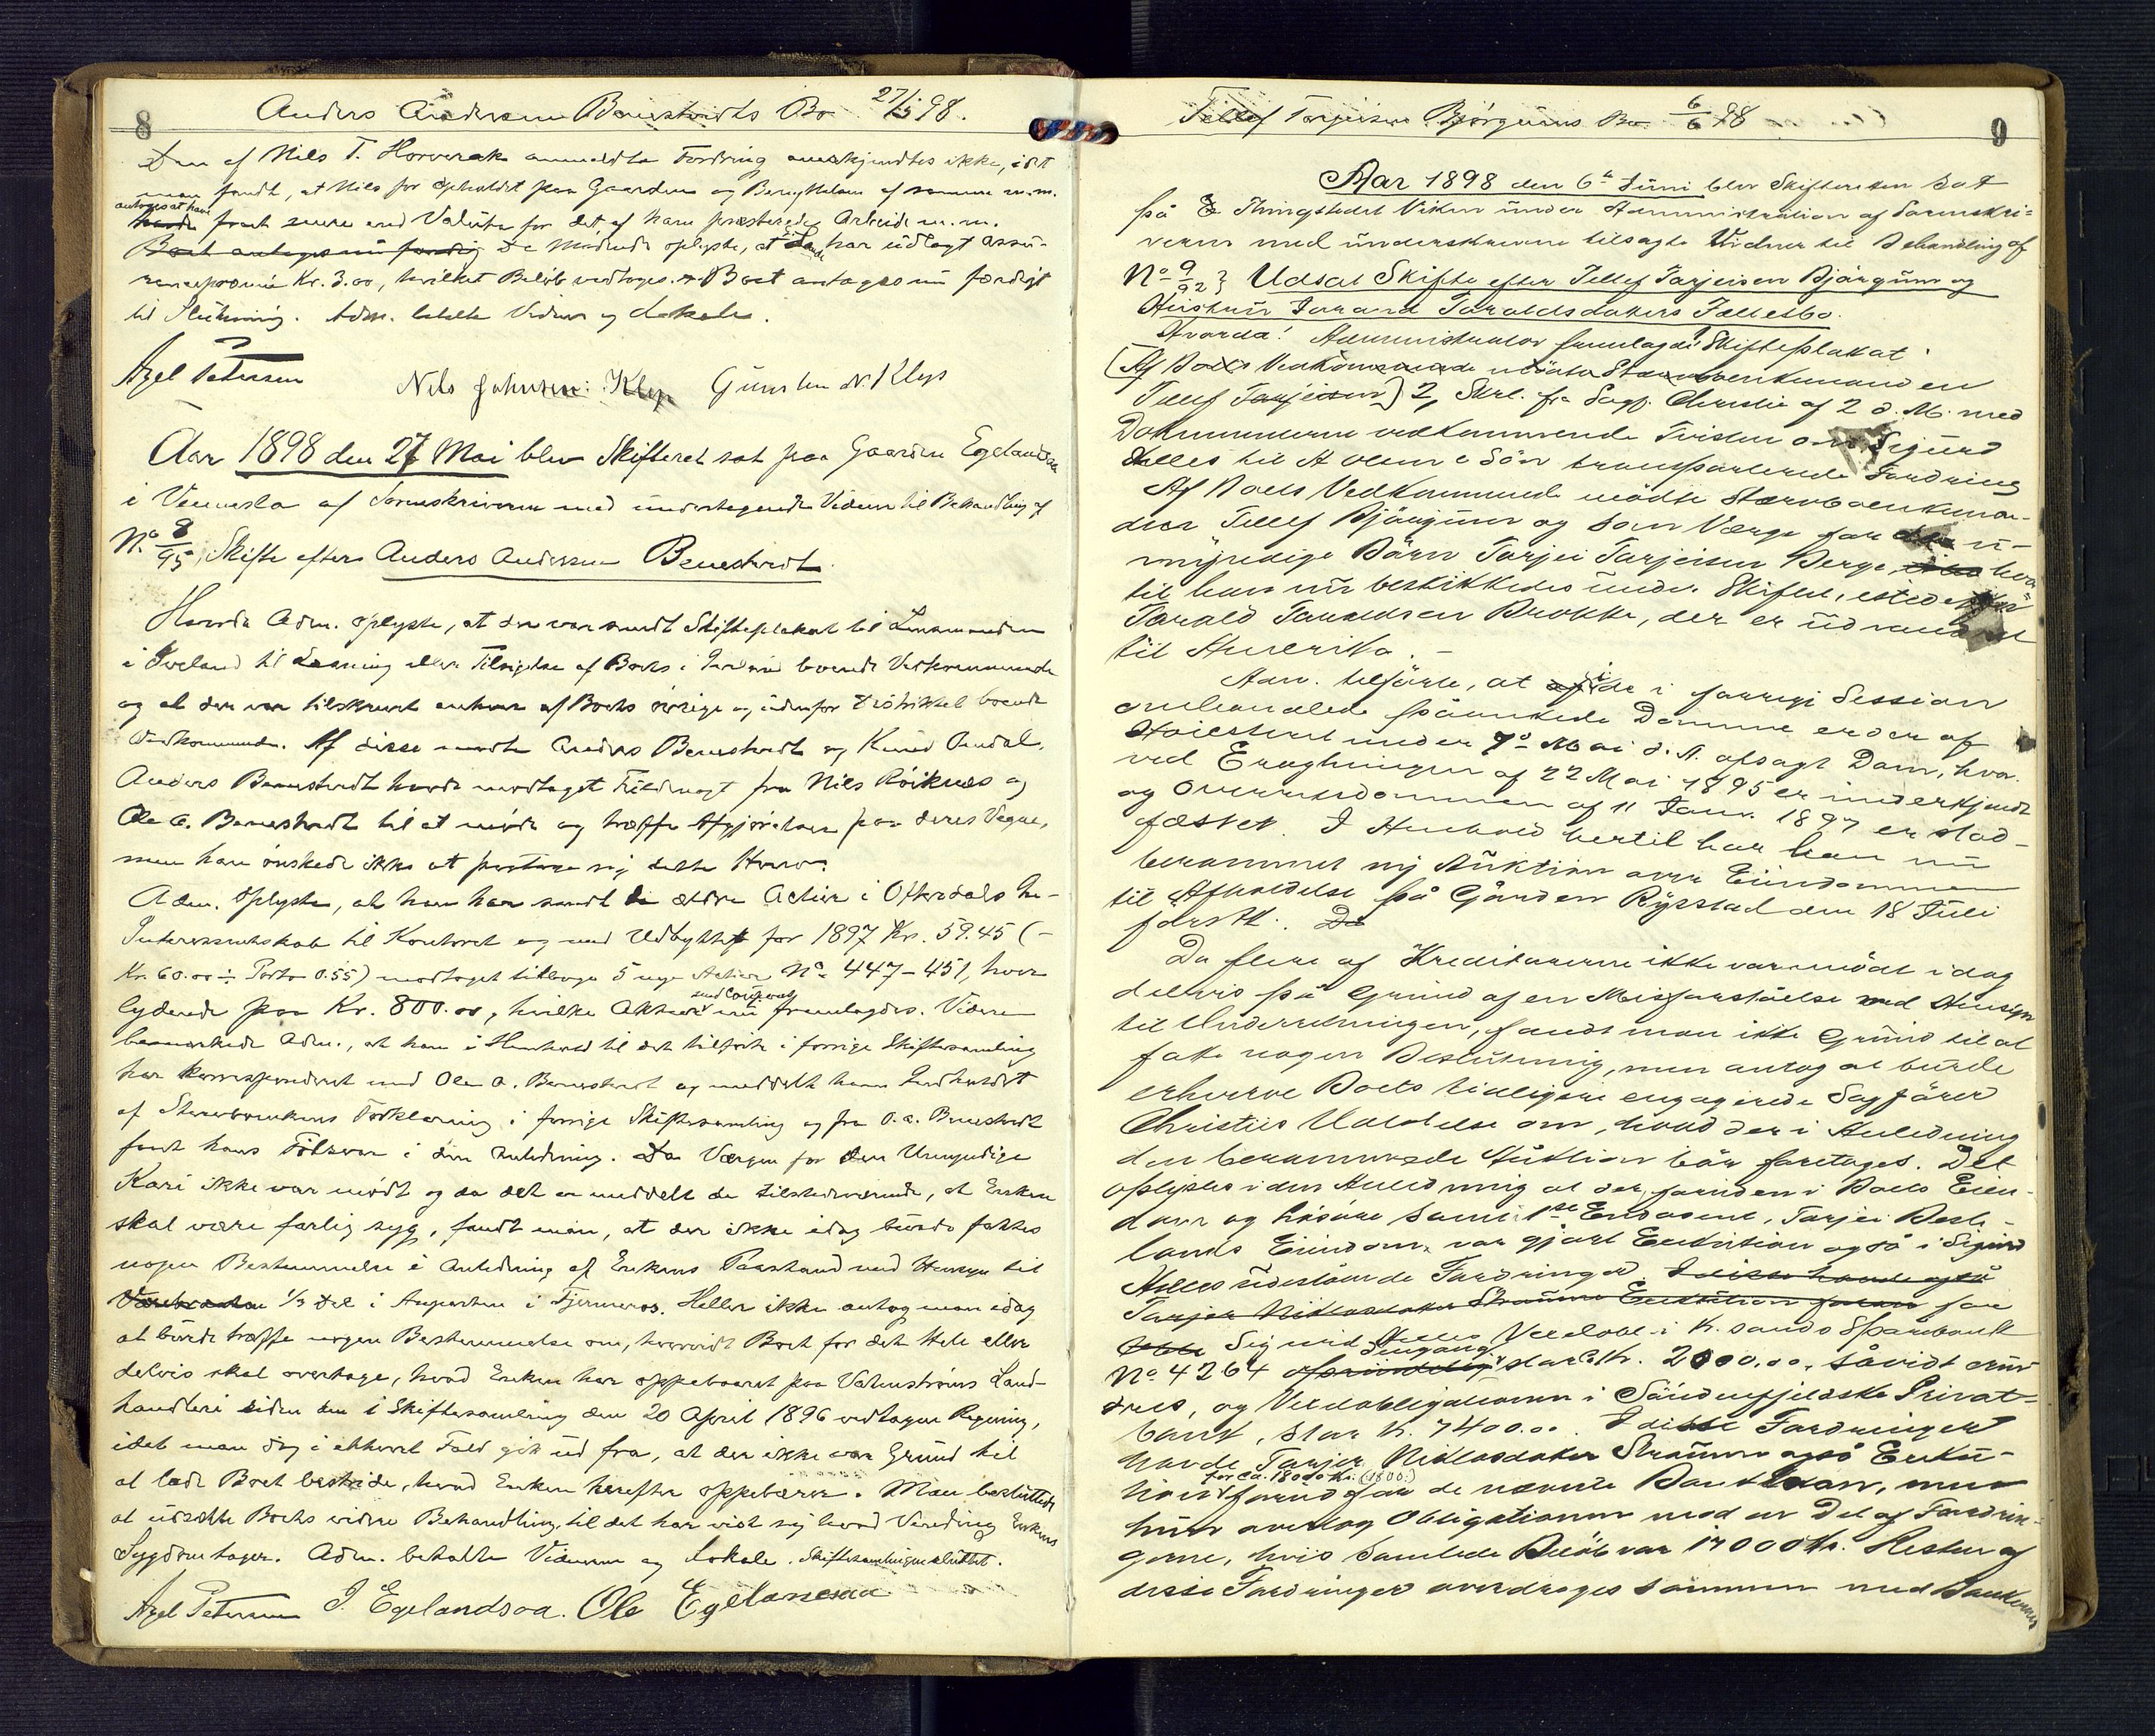 8
Anders Andersen Beuestvedts Bo 27/5 98.
Den af Nils T. Horverak anmeldte Fordring anerkjendtes ikke, idet
man fandt, at Nils for Opholdet paa Gaarden og Benyttelsen af samme m.m.
antoges at have
havde faaet mere end Valuta for det af ham præsterede Arbeide m.m.
Boet antages nu færdig De mødende oplyste, at har udlagt assu-
rancepræmie Kr. 3.00, hvilket Beløb vedtoges. Boet antages nu færdigt
til Slutning. Adm. betalte Vidner og Lokale.
Axel Petersen Nils Johnsen Klep Gunsten N. Kleps
Aar 1898 den 27 Mai blev Skifteret sat paa Gaarden Egelandsaa
i Vennesla af Sorenskriveren med undertegnede Vidner til Behandling af
No 8/95, Skifte efter Anders Andersen Beuestvedt.
Hvorda Adm. oplyste, at der var sendt Skifteplakat til Lensmanden
i Iveland til Læsning eller Tilsigelse af Boets i boende Vedkommende
og at der var tilskrevet enhver af Boets øvrige og udenfor Distriktet boende
Vedkommende. Af disse mødte Anders Beuestvedt og Knud Omdal.
Anders Beuestvedt havde modtaget Fuldmagt fra Nils Röiknes og
Ole A. Beuestvedt til at møde og træffe Afgjørelser paa deres Vegne,
men han ønskede ikke at paatage sig dette Hverv.
Adm. oplyste, at han har sendt de ældre Actier i Otteredals
Interessentskab til Kontoret og med Udbyttet for 1897 Kr. 59.45 (-
Kr. 60.00 ÷ Porto 0.55) modtaget tilbage 5 nye Actier No 447-451, hver
med Coupons
lydende paa Kr. 800.00, hvilke Aktier nu fremlagdes. Videre
bemærkede Adm., at han i Henhold til det tilførte i forrige Skiftesamling
har korresponderet med Ole A. Beuestvedt og meddelt ham Indholdet
af Stervboenkens Forklaring i forrige Skiftesamling og fra O. A. Beuestvedt
faaet hans Tilsvar i den Anledning. Da Værgen for den Umyndige
Kari ikke var mødt og da det er meddelt de tilstedeværende, at Enken
skal være farlig syg, fandt man, at der ikke idag burde fattes
nogen Bestemmelse i Anledning af Enkens Paastand med Hensyn til
1/3 Del i Anparten i Tjermeros. Heller ikke antog man idag
at burde træffe nogen Bestemmelse om, hvorvidt Boet for det Hele eller
delvis skal overtage, hvad Enken har oppebaaret paa Vatnestrøms Land-
handleri siden den i Skiftesamling den 20 April 1896 vedtagne Regning,
idet man dog i ethvert Fald gik ud fra, at der ikke var Grund til
at lade Boet bestride, hvad Enken herefter oppebærer. Man besluttede
at udsætte Boets videre Behandling, til det har vist sig hvad Vending Enkens
Sygdom tager. Adm. betalte Vidnerne og Lokale. Skiftesamlingen sluttet.
Axel Petersen J. Egelandsaa. Ole Egelandsaa
9
Tellef Tarjeisen Bjørgums Bo 6/6 98
Aar 1898 den 6te Juni blev Skifteretten sat
på Thingstedet Viken under Administration af Sorenskri-
veren med underskrevne tilsagte Vidner til Behandling af
No 9/92 } Udsat Skifte efter Tellef Tarjeisen Bjørgum og
Hustru Jorand Taraldsdatters Fællesbo.
Hvorda! Administrator fremlagde 1 Skifteplakat
(Af Boets Vedkommende mødte Stervboenkemanden
Tellef Tarjeisen) 2, Skrl. fra Sagf. Christie af 2 d. M. med
Dokumenterne vedkommende Tvisten om Sigurd
Helles til A Olsen & Søn transporterede Fordring
Af Boets Vedkommende mødte Stervboenkeman-
den Tellef Bjørgum og som Værge for de u-
myndige Børn Tarjei Tarjeisen Berge, hvor
til han nu beskikkedes under Skiftet, istedetfor
Tarald Taraldsen Brokke, der er udvandret
til Amerika. -
Adm. tilførte, at i de i forrige Session
omhandlede påankede Domme er der af
Høiesteret under 7de Mai d. A. afsagt Dom, hvor-
ved Eragtningen af 22 Mai 1895 er underkjendt
og Overretsdommen af 11 Janr. 1897 er stad-
fæstet. I Henhold hertil har han nu
berammet ny Auktion over Eiendommen
til Afholdelse på Gården Rysstad den 18 Juli
førstk. Da
Da flere af Kreditorerne ikke var mødt idag
delvis på Grund af en Misforståelse med Hensyn
til Underretningen, fandt man ikke Grund til at
fatte nogen Beslutning, men antog at burde
erhverve Boets tidligere engagerede Sagfører
Christies Udtalelse om, hvad der i Anledning
den berammede Auktion bør foretages. Det
oplystes i den Anledning at der, foruden i Boets Eien-
dom og Løsøre samt 1ste Endossent, Tarjei Beste-
lands Eiendom, var gjort Exekution også i Sigurd
Helles udestående Fordringer. I disse havde også
Tarjer Niklosdatter Straume Exekution foran for
Sigurd Helles Vexelobl. i K.sands Sparebank
No 4264 oprindelig stor Kr. 2000.00, såvidt erin-
dres, og Vexelobligationen i Søndenfjeldske Privat-
bank, stor Kr. 7400.00. I disse Fordringer
havde Tarjer Niklosdatter Straume også Exeku-
for ca. 18000 Kr. (1800:)
tion forud for de nævnte Banklaan, men
hun overtog Obligationen mod en Del af Fordrin-
gerne, hvis samlede Beløb var 17000 Kr. Resten af
disse Fordringer overdroges sammen med Bankernes